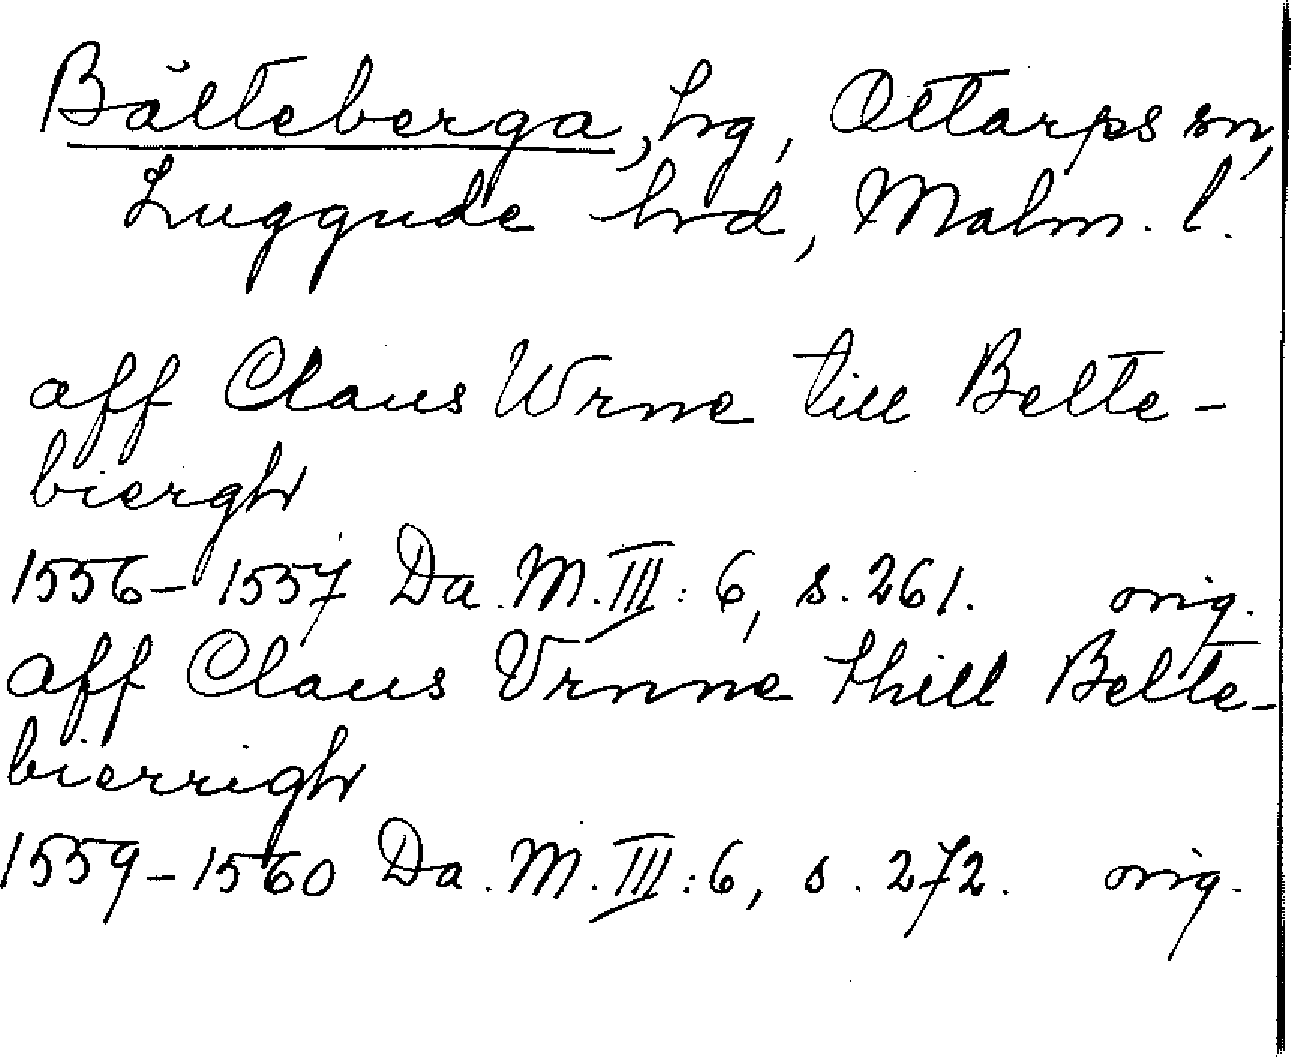 Bälteberga, hg, Ottarps sn,
Luggude hrd, Malm. l.
aff Claus Wrne till Belte-
biergh
1556–1557 Da. M. III: 6, s. 261. orig.
aff Claus Vrnne thill Belte-
bierrigh
1559–1560 Da. M. III: 6, s. 272. orig.